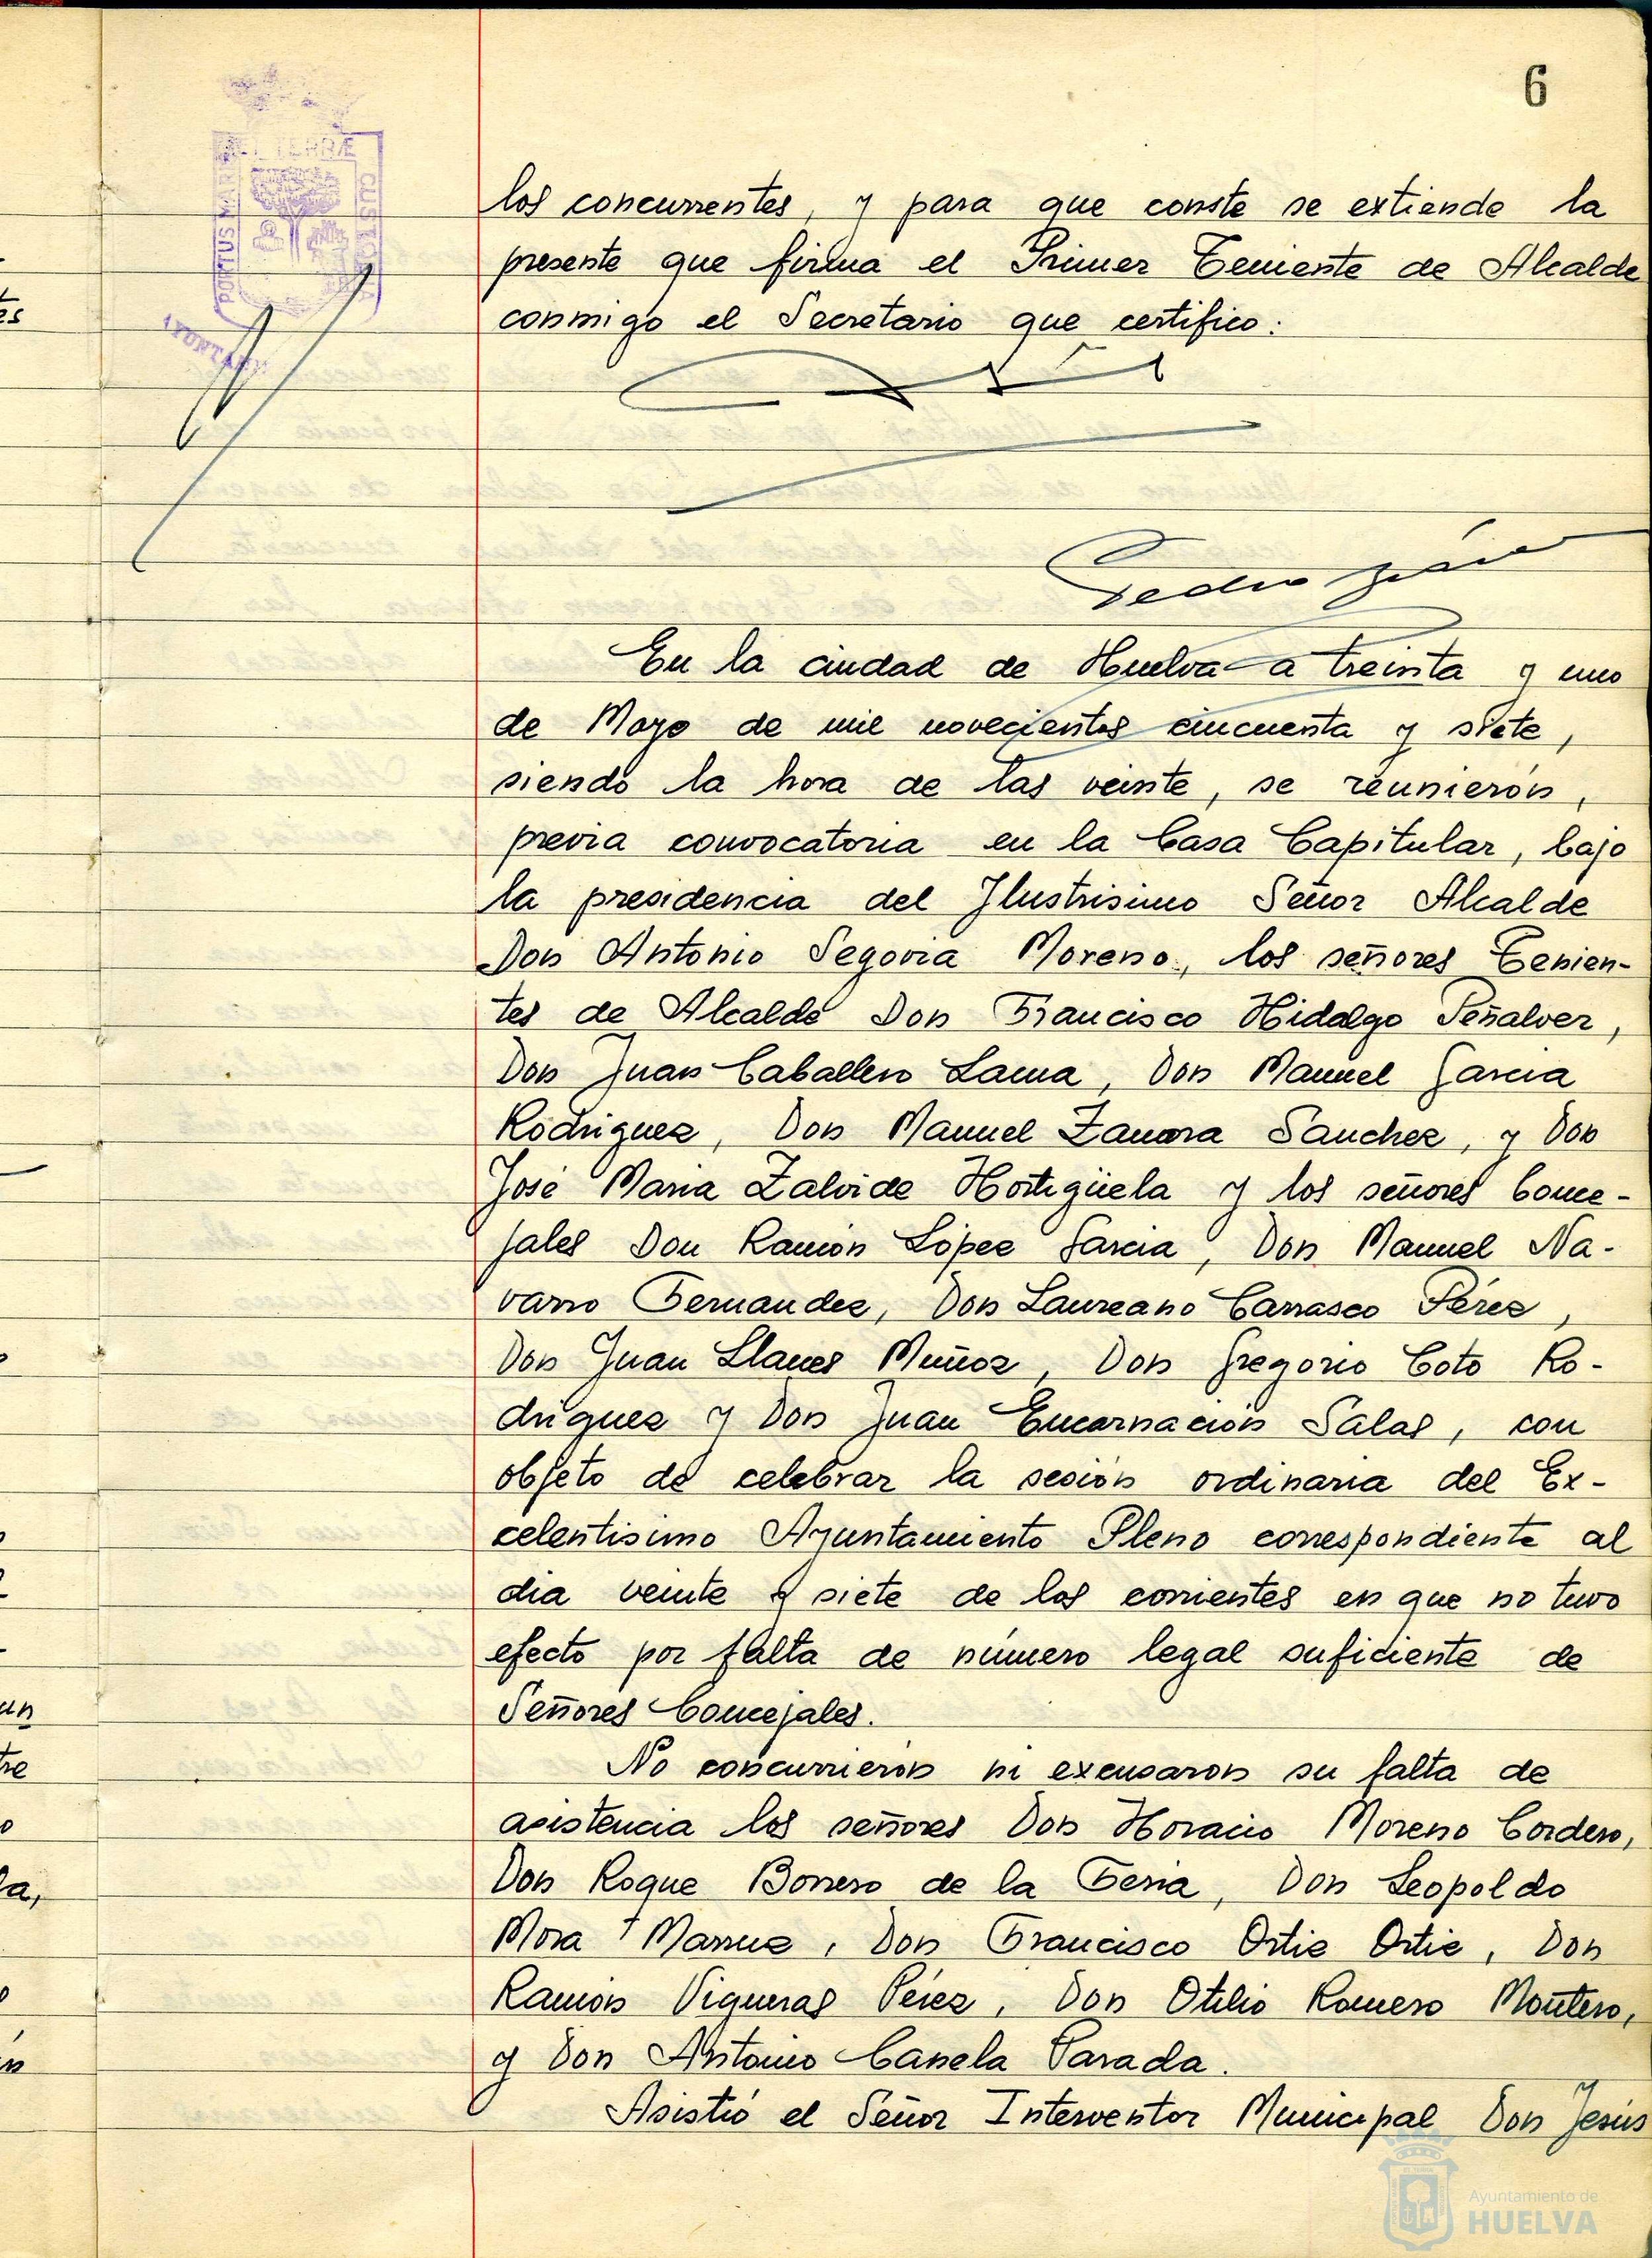 6
ET TERRÆ
PORTUS MARIS
CUSTODIA
AYUNTAM
los concurrentes, y para que conste se extiende la
presente que firma el Primer Teniente de Alcalde
conmigo el Secretario que certifico:
Pedro
En la ciudad de Huelva a treinta y uno
de Mayo de mil novecientos cincuenta y siete,
siendo la hora de las veinte, se reunieron,
previa convocatoria en la Casa Capitular, bajo
la presidencia del Ilustrisimo Señor Alcalde
Don Antonio Segovia Moreno, los señores Tenien-
tes de Alcalde Don Francisco Hidalgo Peñalver,
Don Juan Caballero Lama, Don Manuel Garcia
Rodriguez, Don Manuel Zamora Sanchez, y Don
José Maria Zalvide Hortigüela y los señores Conce-
jales Don Ramón López Garcia, Don Manuel Na-
varro Fernandez, Don Laureano Carrasco Pérez,
Don Juan Llanes Muñoz, Don Gregorio Coto Ro-
driguez y Don Juan Encarnación Salas, con
objeto de celebrar la sesión ordinaria del Ex-
celentisimo Ayuntamiento Pleno correspondiente al
dia veinte y siete de los corrientes en que no tuvo
efecto por falta de número legal suficiente de
Señores Concejales.
No concurrieron ni excusaron su falta de
asistencia los señores Don Horacio Moreno Cordero,
Don Roque Borrero de la Feria, Don Leopoldo
Mora Marruz, Don Francisco Ortiz Ortiz, Don
Ramón Vigueras Pérez, Don Otilio Romero Montero,
y Don Antonio Canela Parada.
Asistió el Señor Interventor Municipal Don Jesús
Ayuntamiento de
HUELVA